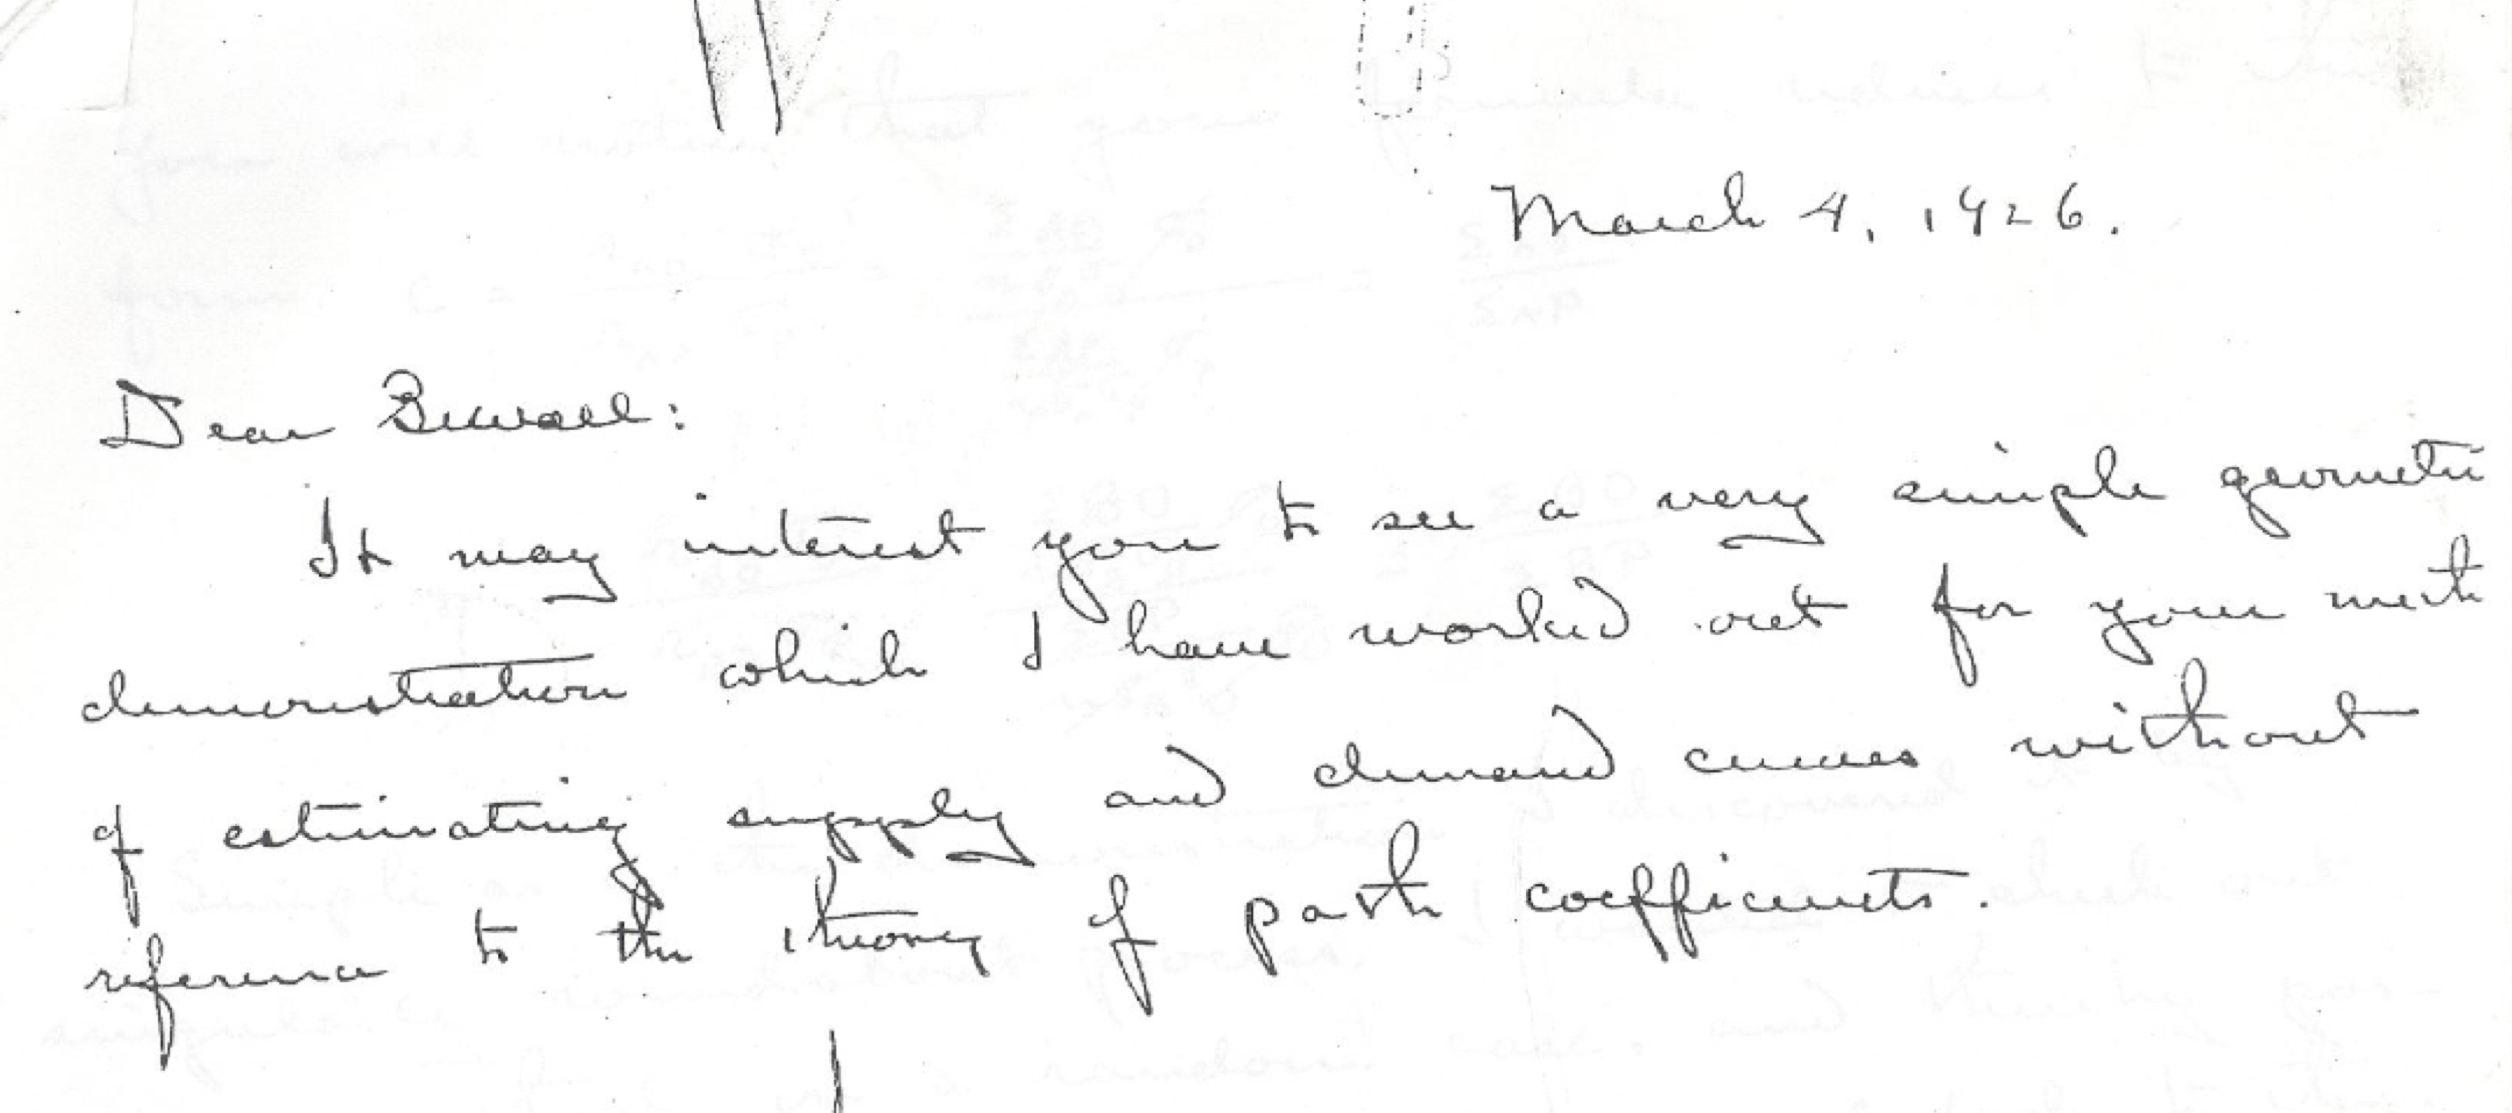 March 4, 1926.
Dear Sewall:
It may interest you to see a very simple geometri
demonstration which I have worked out for your meth
of estimating supply and demand curves without
reference to the theory of path coefficients.